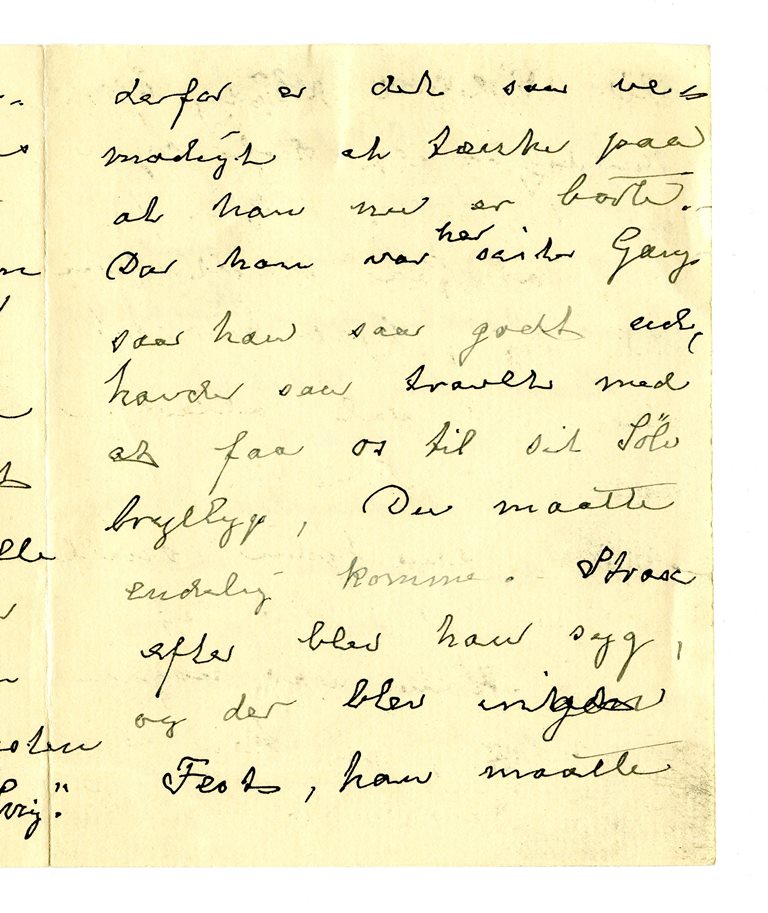 derfor er det saa ve=
modigt at tænke paa
at han nu er borte.
Da han var her sidste Gang
saa han saa godt ud,
havde saa travlt med
at faa os til sit Sölv
bryllyp, Du maatte
endelig komme. Strax
efter blev han syg,
og der blev ingen
Fest, han maatte